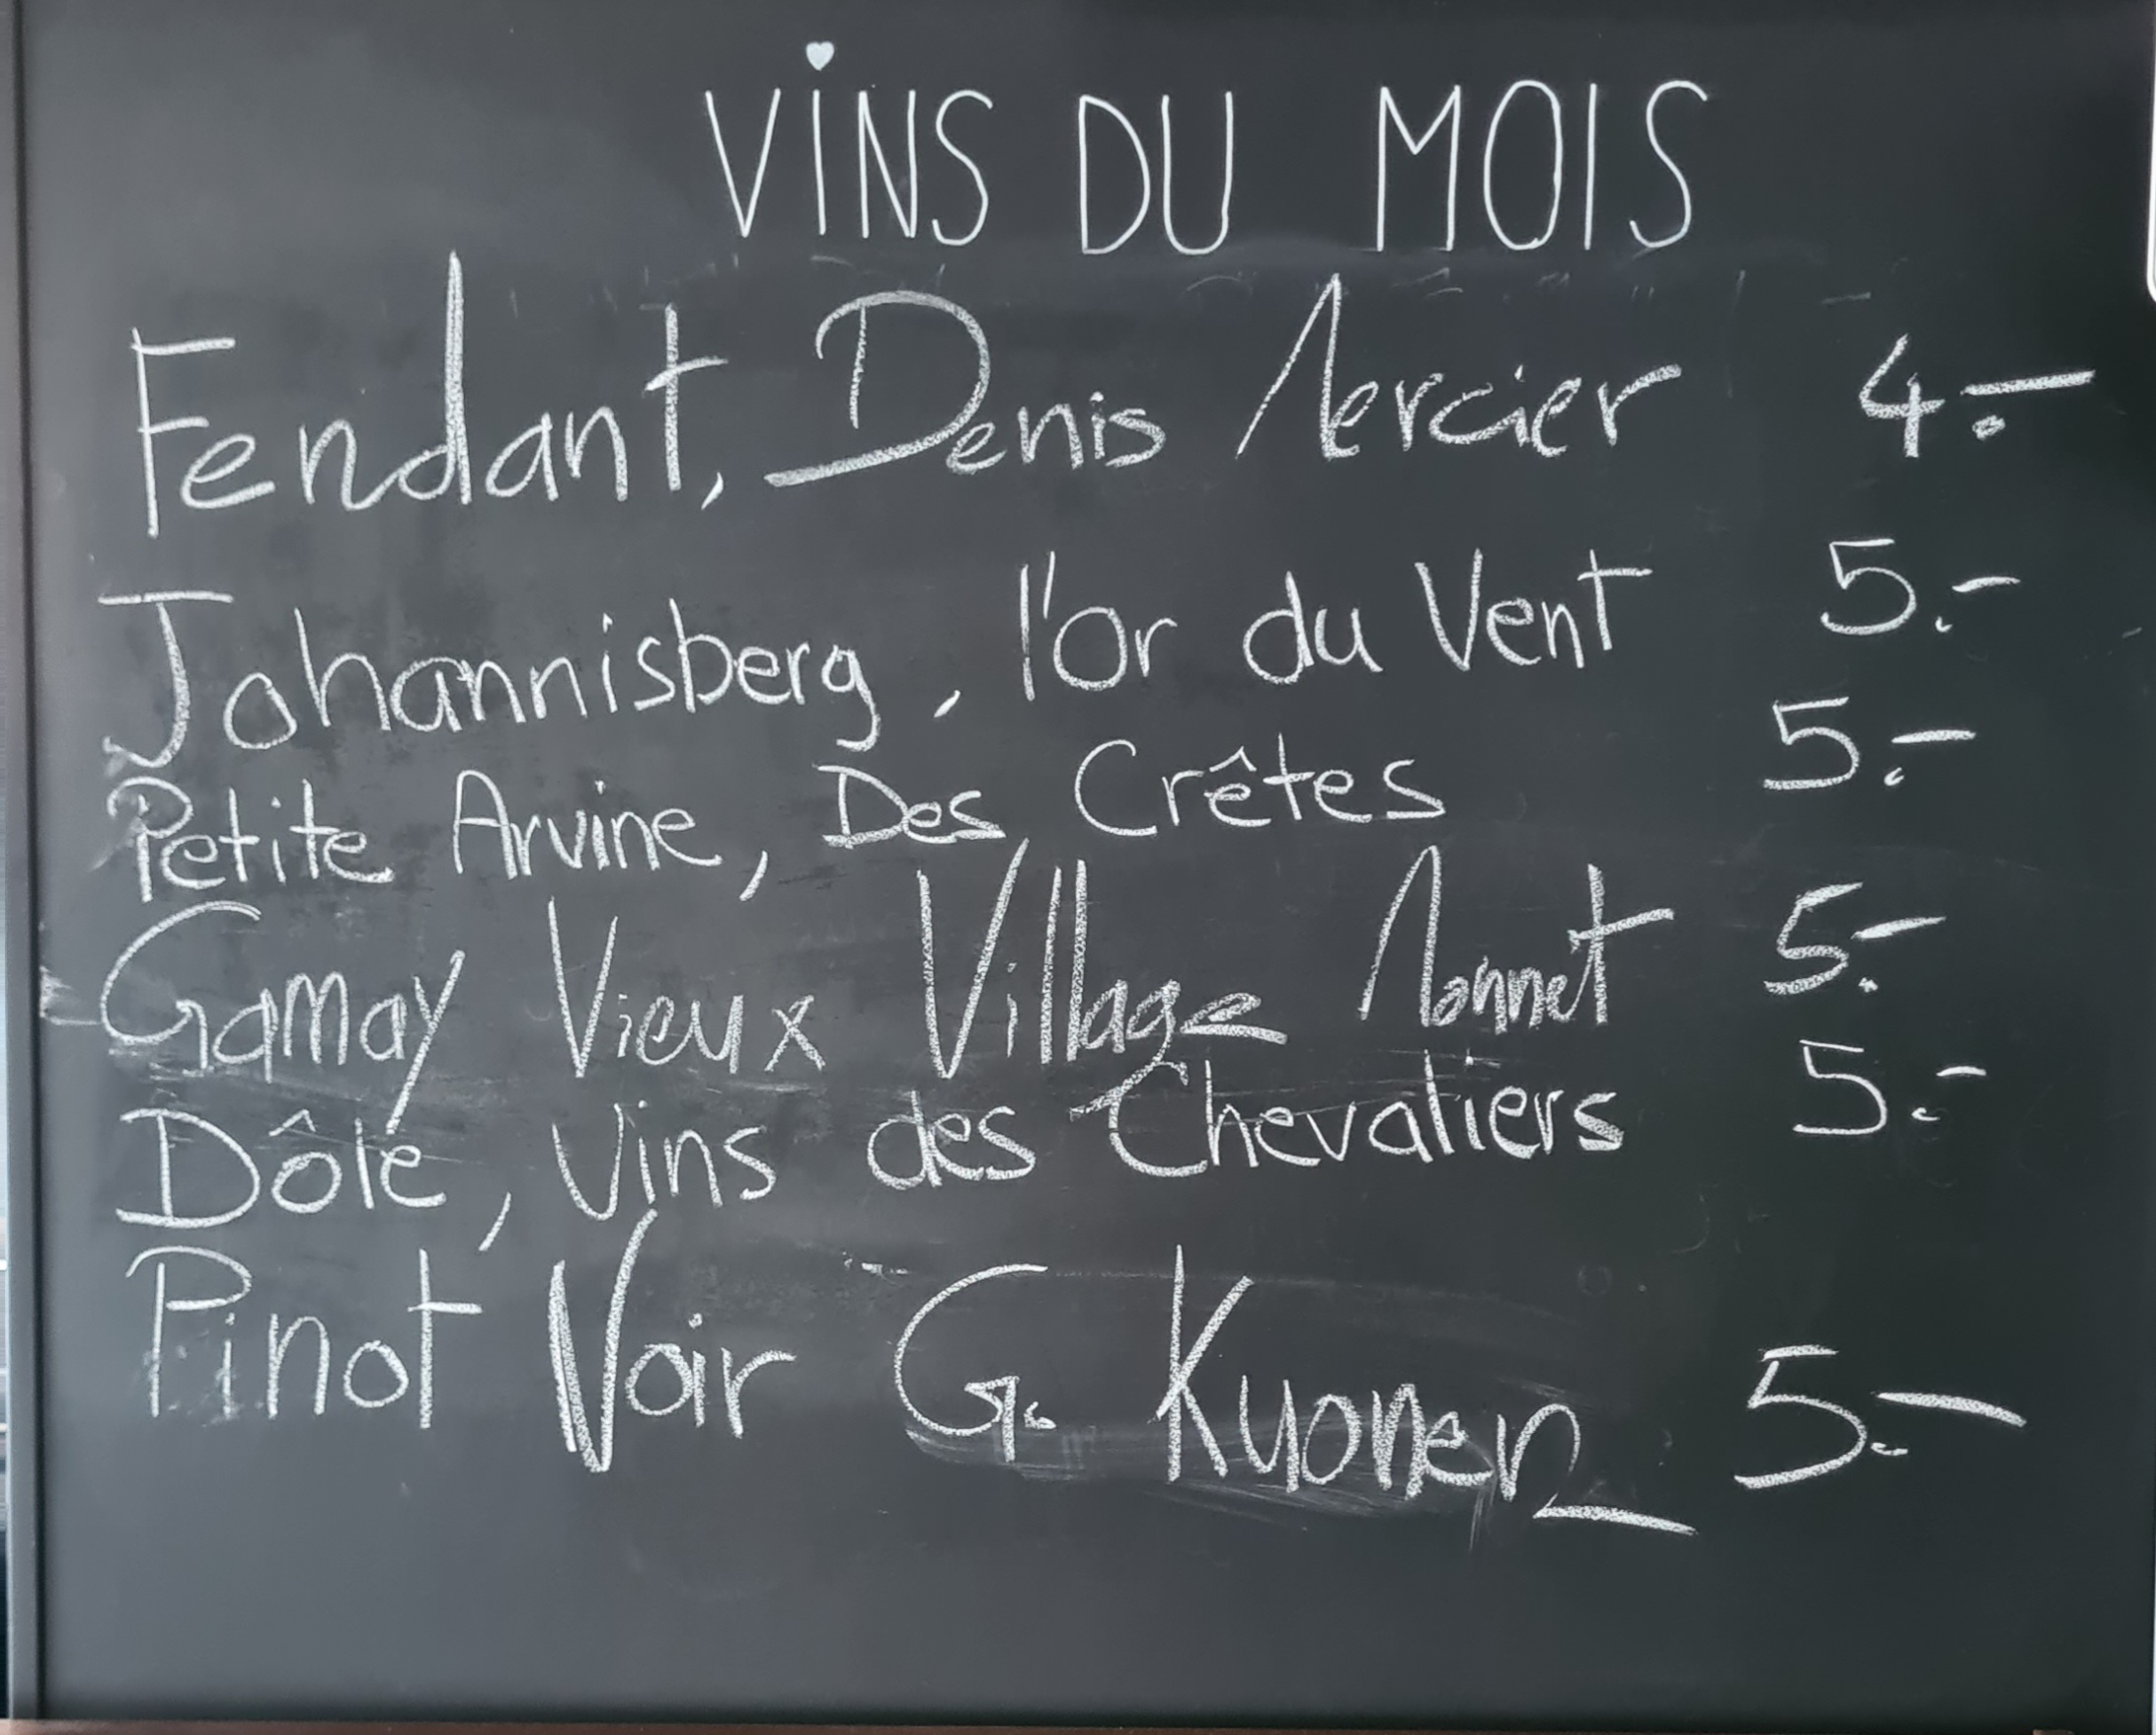 ViNS DU MOIS
Fendant, Denis Mercier 4.-
Johannisberg, l'Or du Vent 5.-
Petite Arvine, Des Crêtes 5.-
Gamay Vieux Village Monnet 5.-
Dôle, Vins des Chevaliers 5.-
Pinot Noir G. Kuonen 5.-